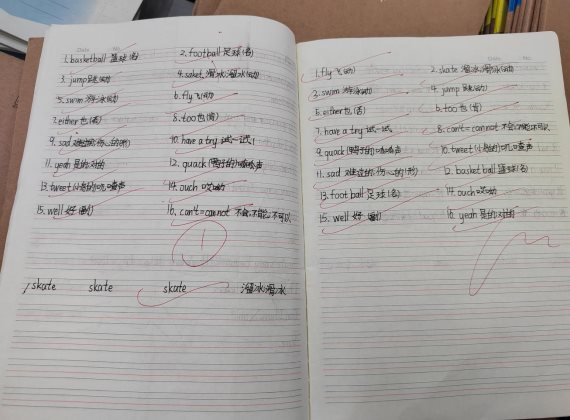 Date No.
1. basketball 篮球(名)
2. football 足球(名)
3. jump 跳(动)
4. saket 滑冰溜冰(动)
5. swim 游泳(动)
6. fly 飞(动)
7. either 也(否)
8. too 也(肯)
9. sad 难过的伤心的(形)
10. have a try 试一试!
11. yeah 是的对的
12. quack (鸭子的)嘎嘎声
13. tweet (小鸟的)叽喳声
14. ouch 哎呦
15. well 好(副)
16. can't=cannot 不会,不能,不可以
1
skate skate skate 溜冰滑冰
Date No.
1. fly 飞(动)
2. skate 溜冰滑冰(动)
3. swim 游泳(动)
4. jump 跳(动)
5. either 也(否)
6. too 也(肯)
7. have a try 试一试
8. can't=cannot 不会不能不可以
9. quack (鸭子的)嘎嘎声
10. tweet (小鸟的)叽喳声
11. sad 难过的,伤心的(形)
12. basketball 篮球(名)
13. football 足球(名)
14. ouch 哎呦
15. well 好(副)
16. yeah 是的对的